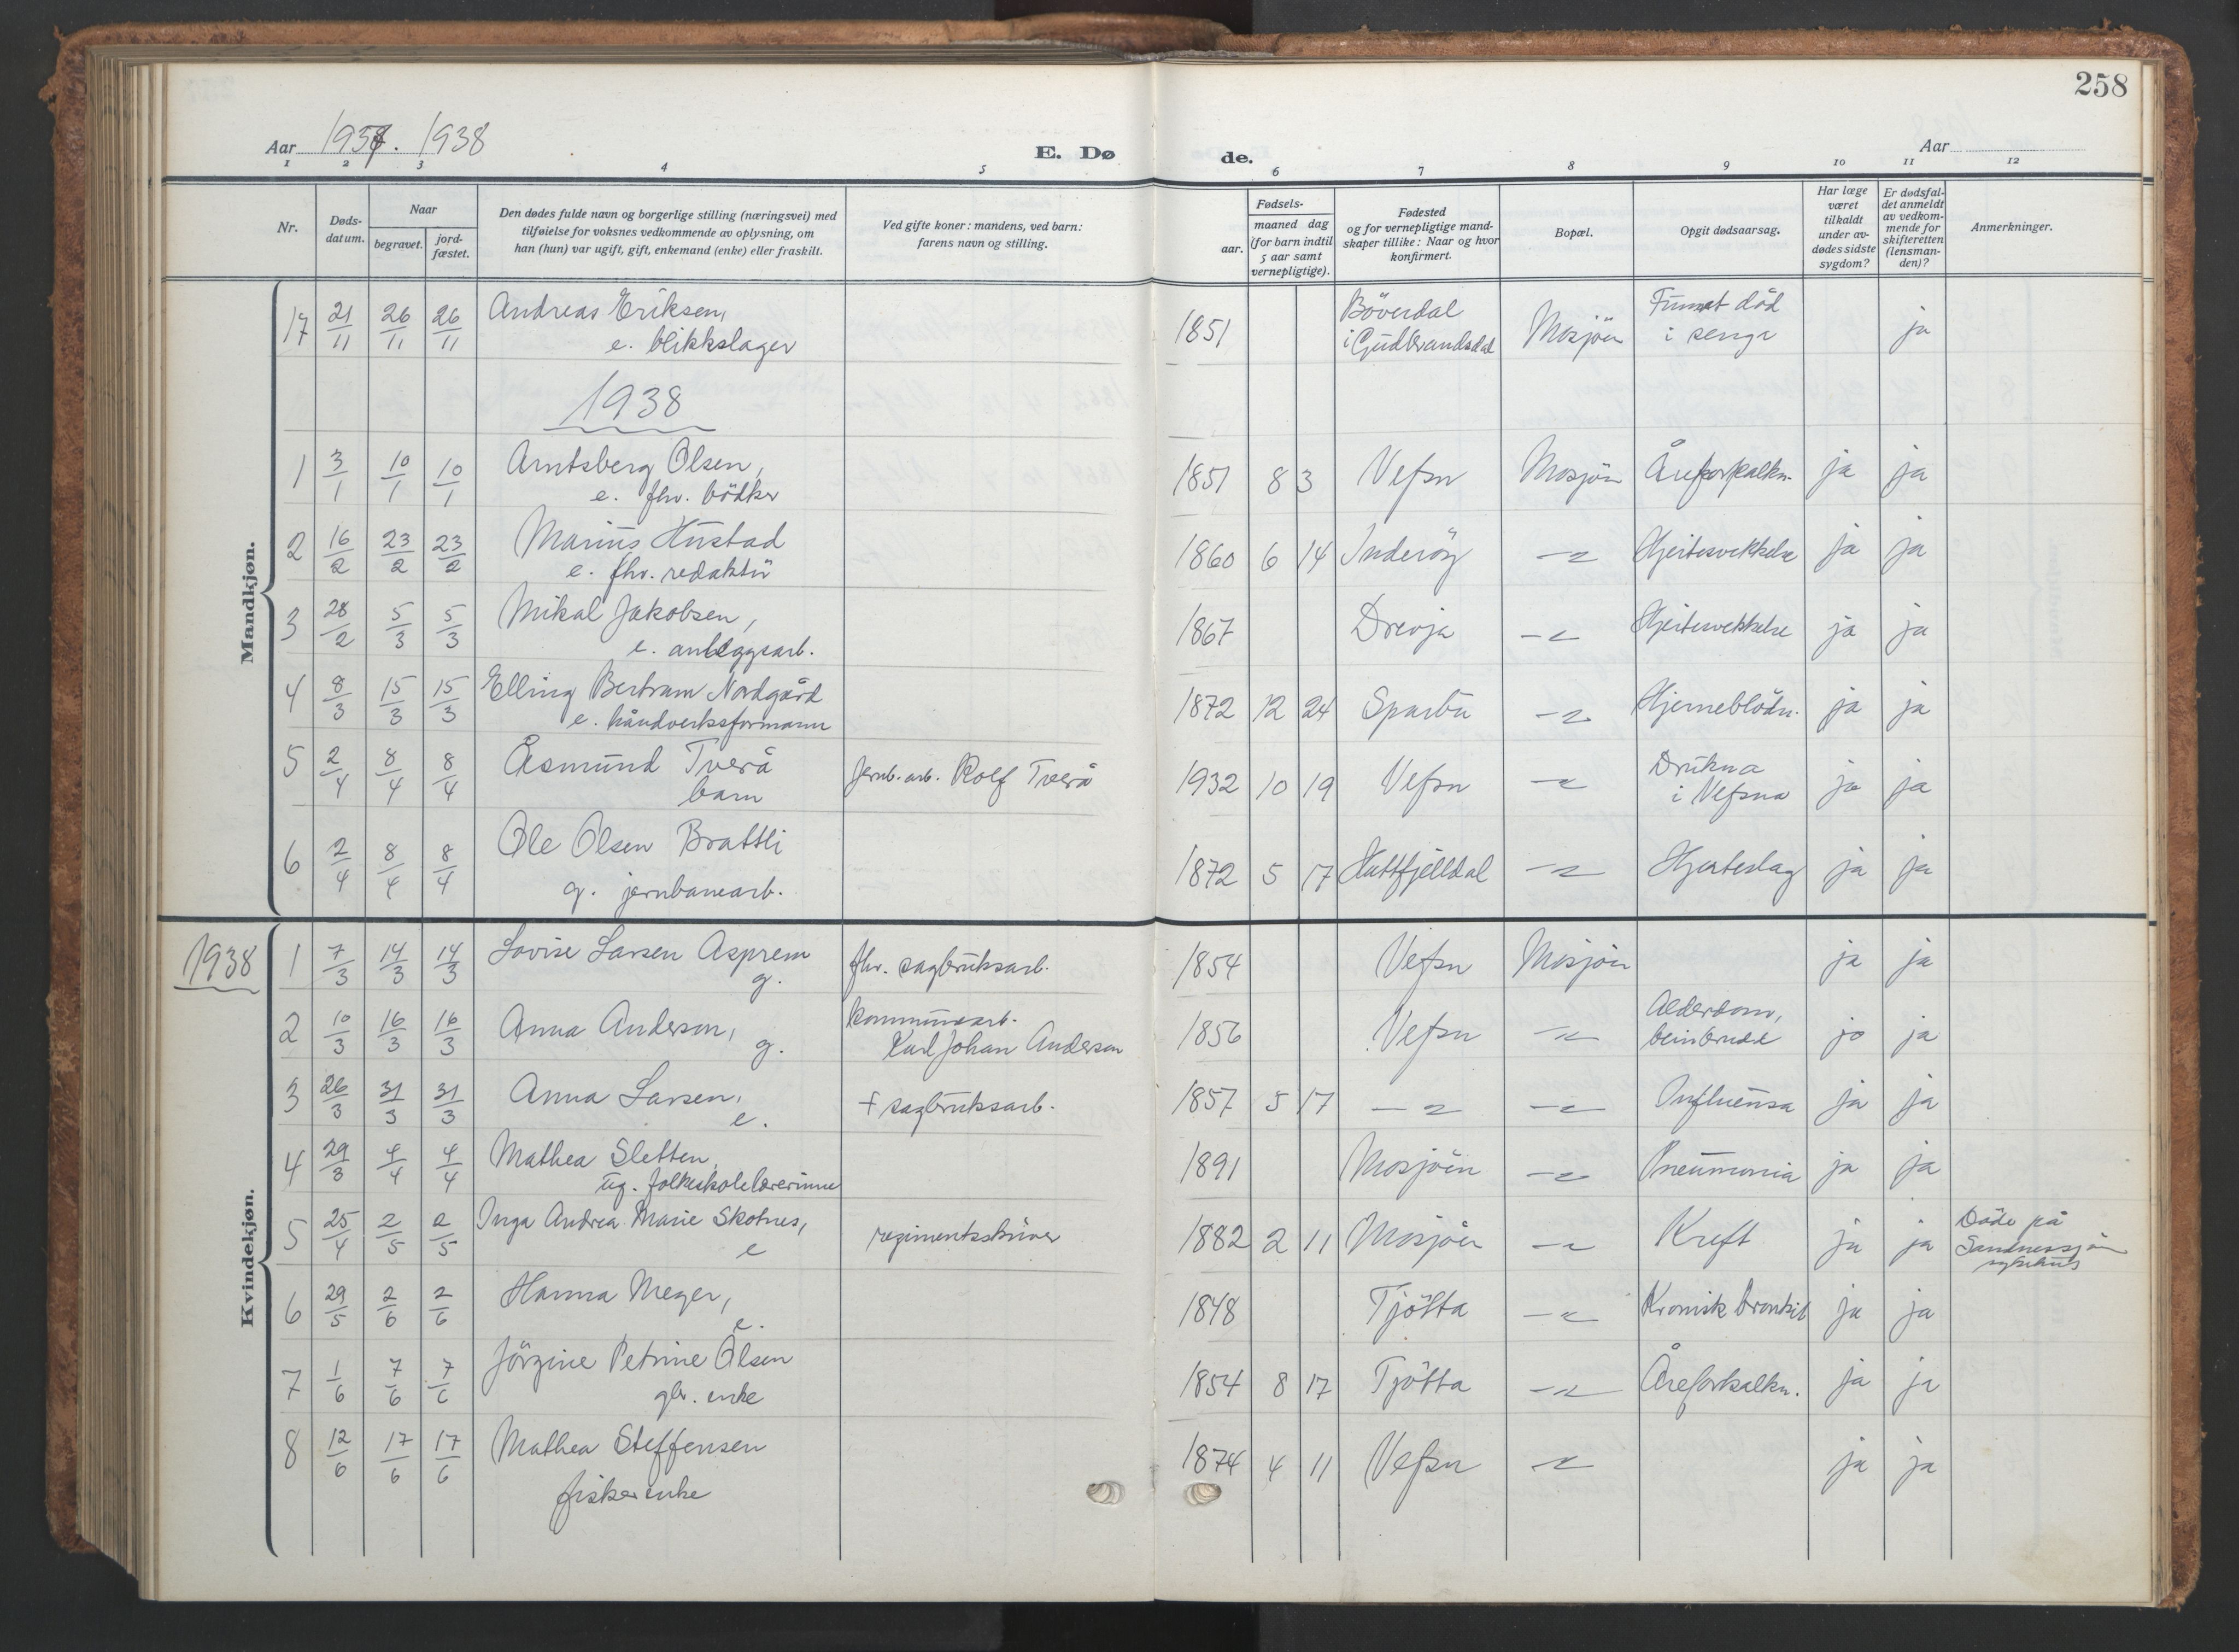 258
Aar 1937. 1938
E. Dø
de.
Aar
1 2 3 4 5 6 7 8 9 10 11 12
Nr.
Døds-
datum.
Naar
begravet.
jord-
fæstet.
Den dødes fulde navn og borgerlige stilling (næringsvei) med
tilføielse for voksnes vedkommende av oplysning, om
han (hun) var ugift, gift, enkemand (enke) eller fraskilt.
Ved gifte koner: mandens, ved barn:
farens navn og stilling.
Fødsels-
aar.
maaned dag
(for barn indtil
5 aar samt
vernepligtige).
Fødested
og for vernepligtige mand-
skaper tillike: Naar og hvor
konfirmert.
Bopæl.
Opgit dødsaarsag.
Har læge
været
tilkaldt
under av-
dødes sidste
sygdom?
Er dødsfal-
det anmeldt
av vedkom-
mende for
skifteretten
(lensman-
den)?
Anmerkninger.
Mandkjøn.
17 21/11 26/11 26/11 Andreas Eriksen, 1851 Böverdal Mosjöen Funnet död ja
e. blikkslager i Gudbrandsdal i senga
1938
1 3/1 10/1 10/1 Arntsberg Olsen, 1851 8 3 Vefsn Mosjöen Åreforkalkn. ja ja
e. fhv. bödker
2 16/2 23/2 23/2 Marius Hustad 1860 6 14 Inderöy -"- Hjertesvekkelse ja ja
e. fhv. redaktör
3 28/2 5/3 5/3 Mikal Jakobsen, 1867 Drevja -"- Hjertesvekkelse ja ja
e. anleggsarb.
4 8/3 15/3 15/3 Elling Bertram Nordgård 1872 12 24 Sparbu -"- Hjerneblödn. ja ja
e. håndverksformann
5 2/4 8/4 8/4 Åsmund Tverå jernb.arb. Rolf Tverå 1932 10 19 Vefsn -"- Drukna ja ja
barn i Vefsna
6 2/4 8/4 8/4 Ole Olsen Brattli 1872 5 17 Hattfjelldal -"- Hjerteslag ja ja
g. jernbanearb.
Kvindekjøn.
1938
1 7/3 14/3 14/3 Lovise Larsen Asprem fhv. sagbruksarb. 1854 Vefsn Mosjöen ja ja
g.
2 10/3 16/3 16/3 Anna Anderson, kommunearb. 1856 Vefsn -"- Alderdom, ja ja
g. Karl Johan Anderson beinbrudd
3 26/3 31/3 31/3 Anna Larsen, + sagbruksarb. 1857 5 17 -"- -"- Influensa ja ja
e.
4 29/3 4/4 4/4 Mathea Sletten, 1891 Mosjöen -"- Pneumonia ja ja
ug. folkeskolelærerinne
5 25/4 2/5 2/5 Inga Andrea Marie Skotnes, regimentsskriver 1882 2 11 Mosjöen -"- Kreft ja ja Döde på
e Sandnessjöen
sykehus
6 29/5 2/6 2/6 Hanna Meyer, 1848 Tjötta -"- Kronisk bronkit ja ja
e.
7 1/6 7/6 7/6 Jörgine Petrine Olsen 1854 8 17 Tjötta -"- Åreforkalkn. ja ja
gbr. enke
8 12/6 17/6 17/6 Mathea Steffensen 1874 4 11 Vefsn -"- ja ja
fisker enke